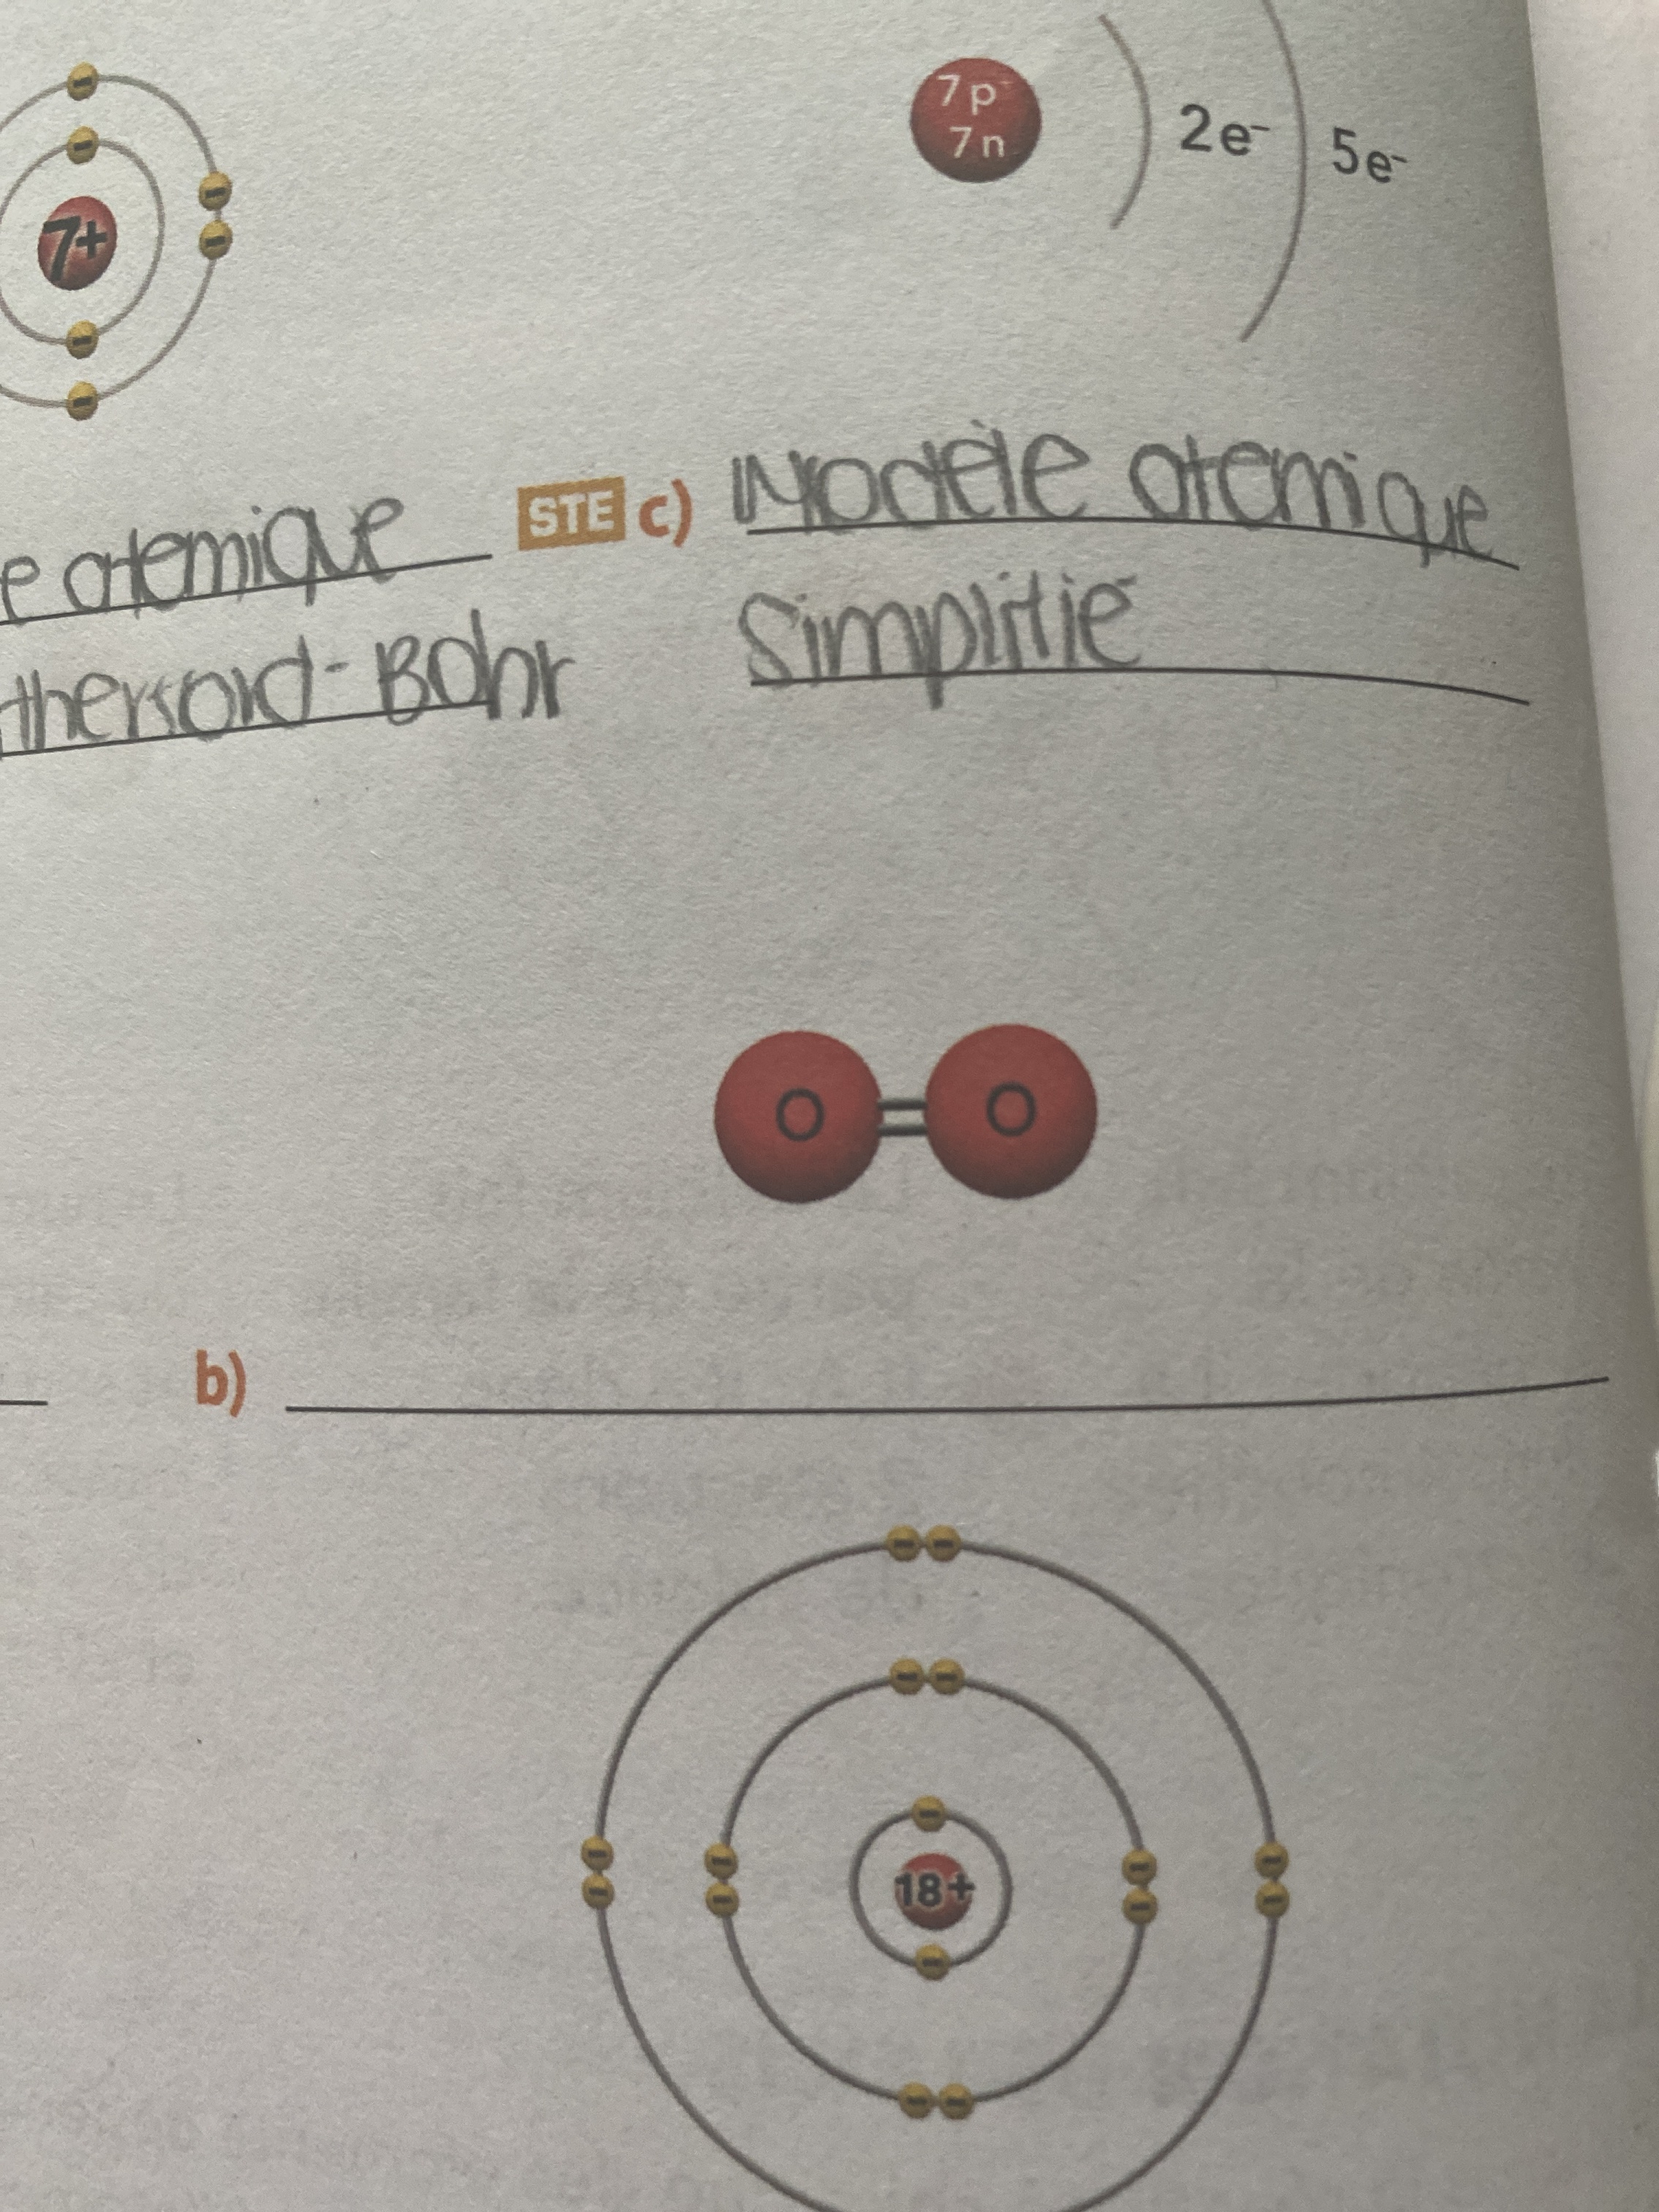 7+
7p
7n
2e⁻
5e⁻
e atemique
STE c) Modèle atemique
Simplifié
therford-Bohr
O = O
b)
18+